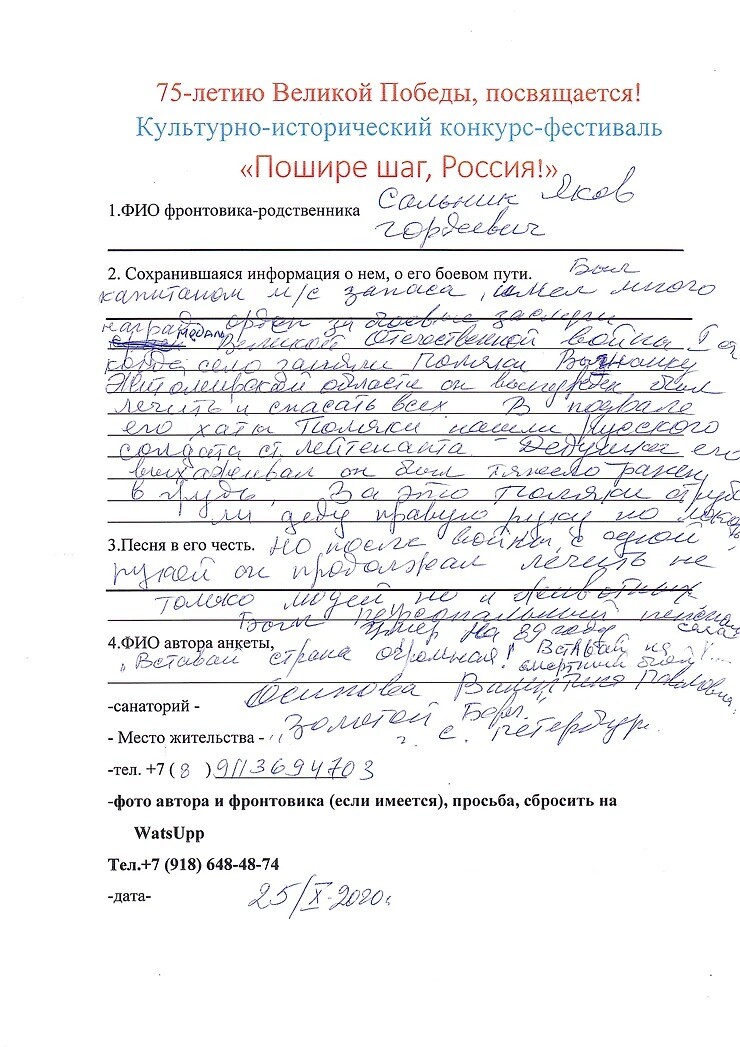 75-летию Великой Победы, посвящается!
Культурно-исторический конкурс-фестиваль
«Пошире шаг, Россия!»
1.ФИО фронтовика-родственника Сальник Яков
Гордеевич
2. Сохранившаяся информация о нем, о его боевом пути. Был
капитаном м/с запаса, имел много
наград орден за боевые заслуги
медаль Великой Отечественной война
когда село заняли Поляки
Житомирской области он вынужден был
лечить и спасать всех. В подвале
его хаты Поляки нашли русского
солдата ст. лейтенанта - Дедушка его
выхаживал он был тяжело ранен
в грудь. За это Поляки отруби
ли деду правую руку по
3.Песня в его честь. Но после войны с одной
рукой он продолжал лечить не
только людей но и животных
Был персональный
умер на 89 году
4.ФИО автора анкеты,
„Вставай страна огромная! Вставай на
смертный бой"
Осипова Валентина Павловна
-санаторий - „Золотой Берег"
- Место жительства - г. С. Петербург.
-тел. +7 ( 8 ) 9113694703
-фото автора и фронтовика (если имеется), просьба, сбросить на
WatsUpp
Тел.+7 (918) 648-48-74
-дата- 25/X-2020г